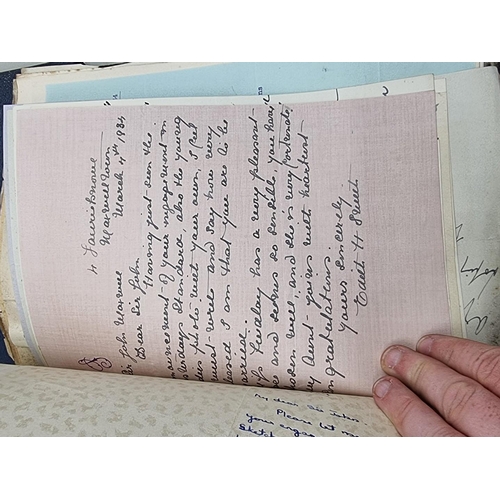 4 Laurieknowe
Maxwelltown
March 4th 1934
Sir John Maxwell
Dear Sir John
Having just seen the
announcement of your engagement in
yesterdays Standard, also the young
photo with your own, I feel
must write and say how very
pleased I am that you are to be
married.
Miss Findlay has a very pleasant
face and seems so sensible, you have
chosen well, and she is very fortunate.
My Aunt joins with heartiest
congratulations.
Yours sincerely
H Sweet
My dear Sir John
Please let me
your engag
Sketch